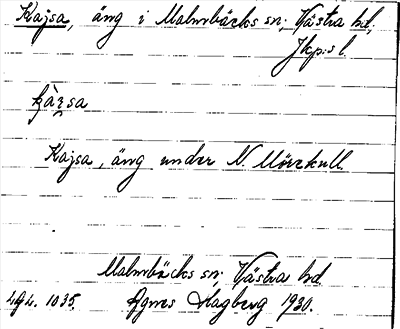 Kajsa, äng i Malmbäcks sn; Västra hd,
Jkp:s l.
Kajsa, äng under N. Mörkull.
Malmbäcks sn; Västra hd.
Agnes Hagberg 1930.